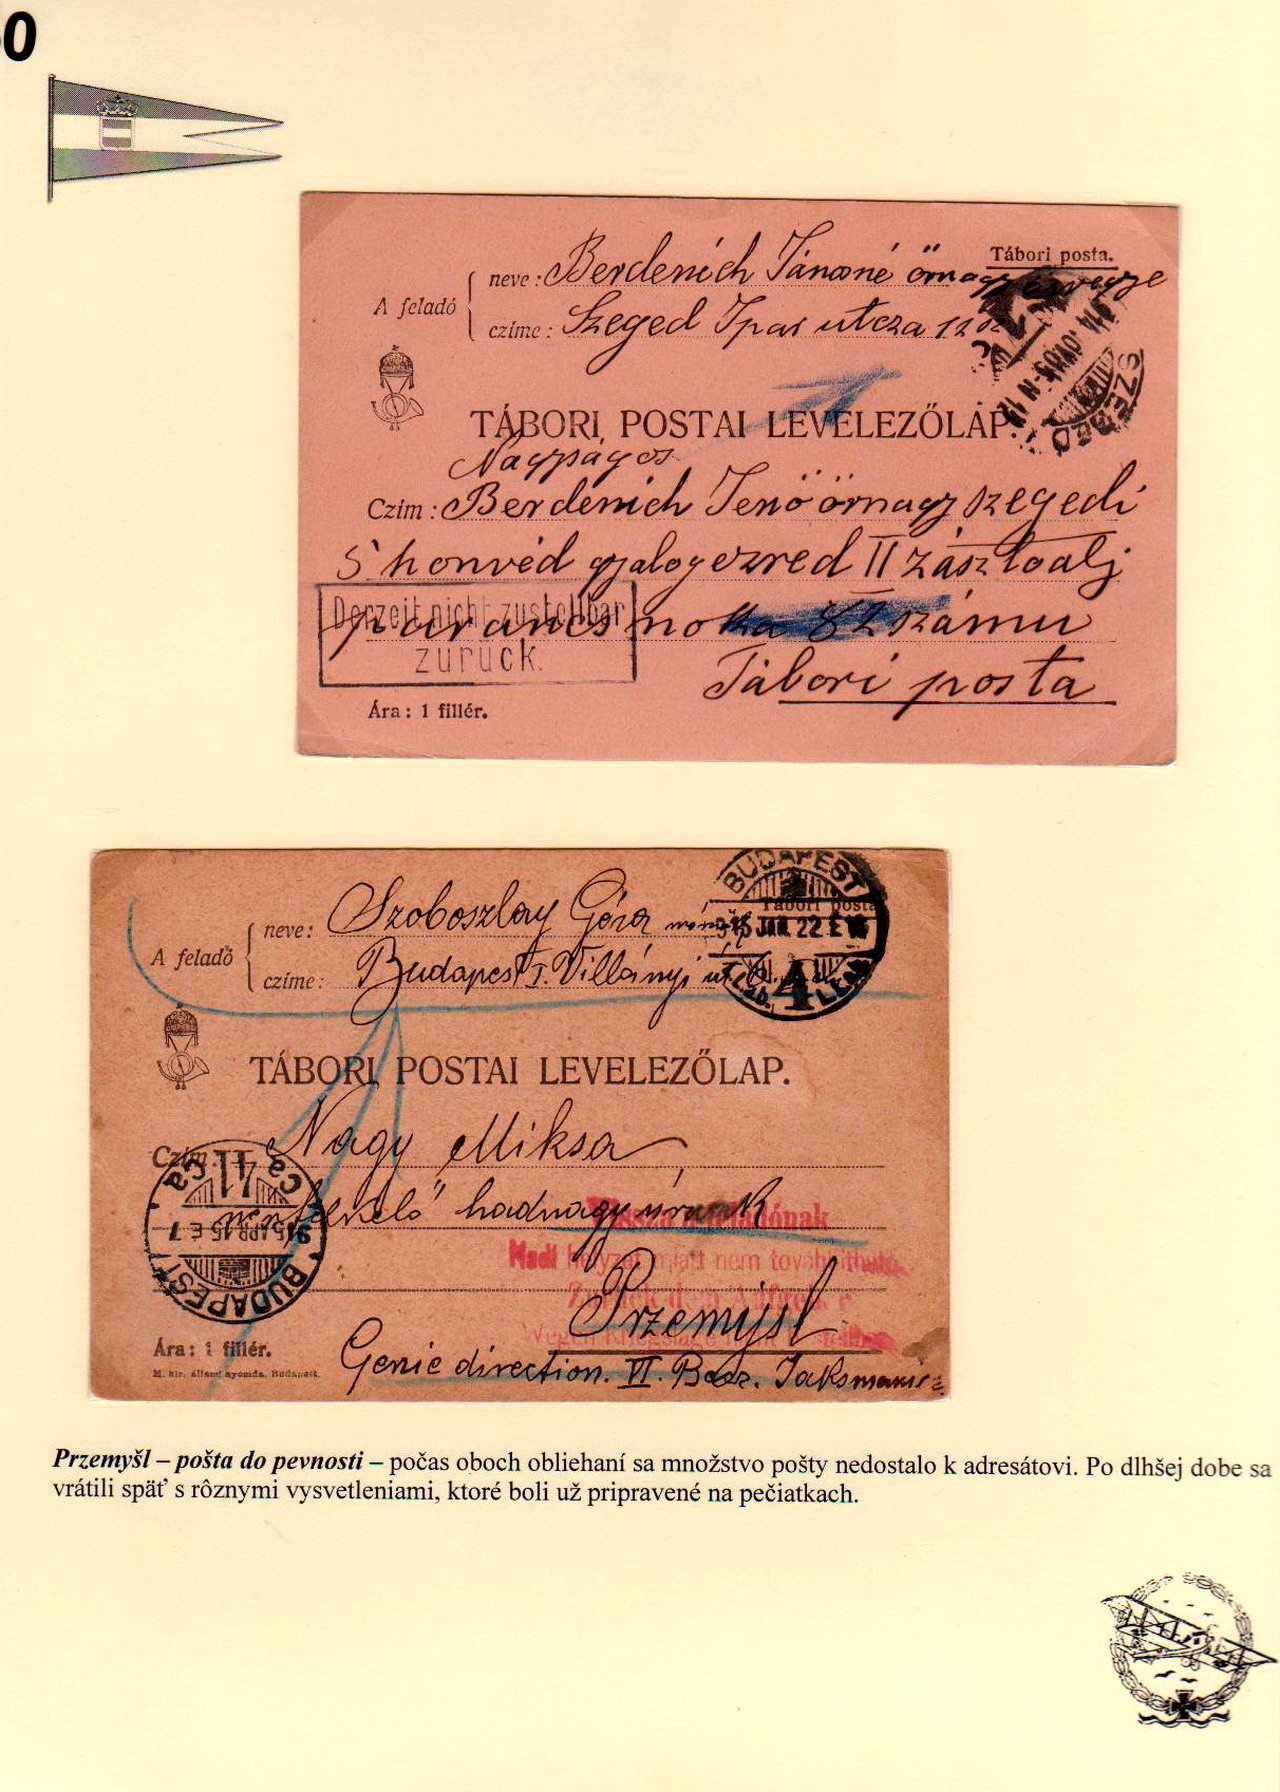 0
Tábori posta.
A feladó
neve: Berdenich Jánosné őrnagy özvegye
czíme: Szeged Ipar utcza 11
SZEGED
TÁBORI POSTAI LEVELEZŐLAP.
Nagyságos
Czim: Berdenich Jenő őrnagy szegedi
5 honvéd gyalogezred II zászloalj
parancsnoka 82 számu
Tábori posta
Derzeit nicht zustellbar
zurück.
Ára: 1 fillér.
BUDAPEST
Tábori posta
915 JAN. 22. E
4
A feladó
neve: Szoboszlay Géza
czíme: Budapest I. Villányi út
TÁBORI POSTAI LEVELEZŐLAP.
Czim: Nagy Miksa
hadnagy úrnak
Przemýsl
Genie direction. VI.
Vissza a feladónak
Hadi helyzet miatt nem továbbítható
Zurück
Wegen Kriegslage
BUDAPEST
915 APR. 15 E 7
41
Ára: 1 fillér.
M. kir. állami nyomda, Budapest.
Przemyšl – pošta do pevnosti – počas oboch obliehaní sa množstvo pošty nedostalo k adresátovi. Po dlhšej dobe sa
vrátili späť s rôznymi vysvetleniami, ktoré boli už pripravené na pečiatkach.